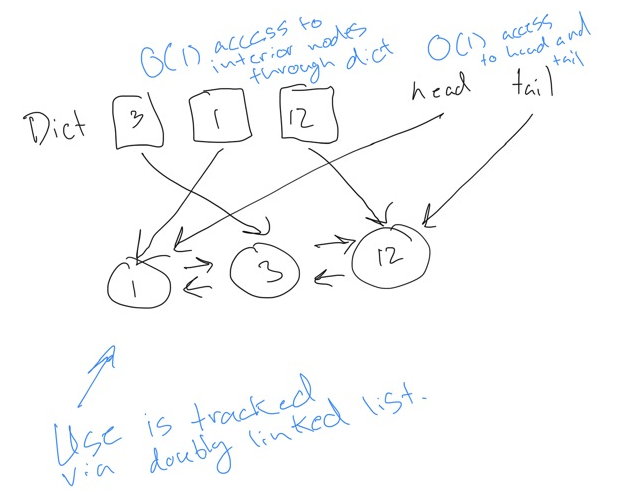 O(1) access to
interior nodes
through dict
O(1) access
to head and
tail
Dict 3 1 12 head tail
1 3 12
Use is tracked
via doubly linked list.